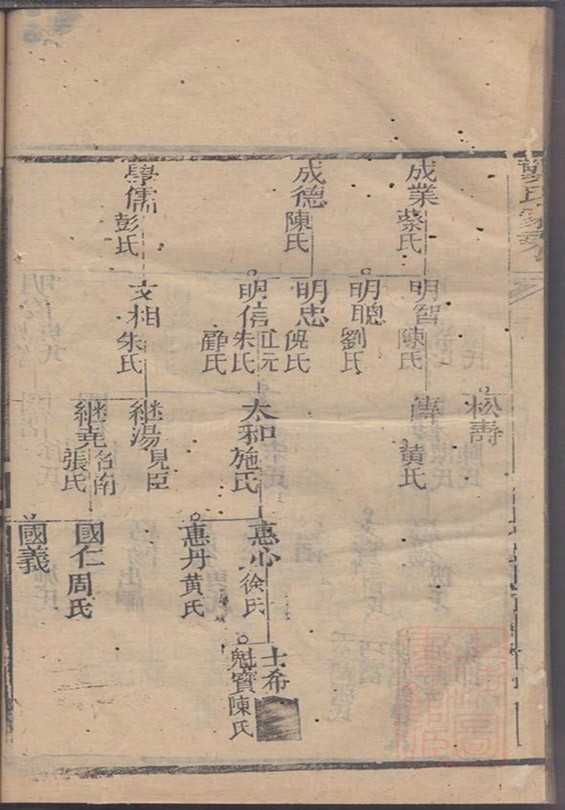 成業 蔡氏
成德 陳氏
學儒 彭氏
明智 陳氏
明聰 劉氏
明忠 倪氏
明信 朱氏
文相 朱氏
松壽
傳 黃氏
太和 施氏
継湯 見臣
継尭 名南 張氏
惠心 徐氏
惠丹 黃氏
國仁 周氏
國義
士希
魁寶 陳氏